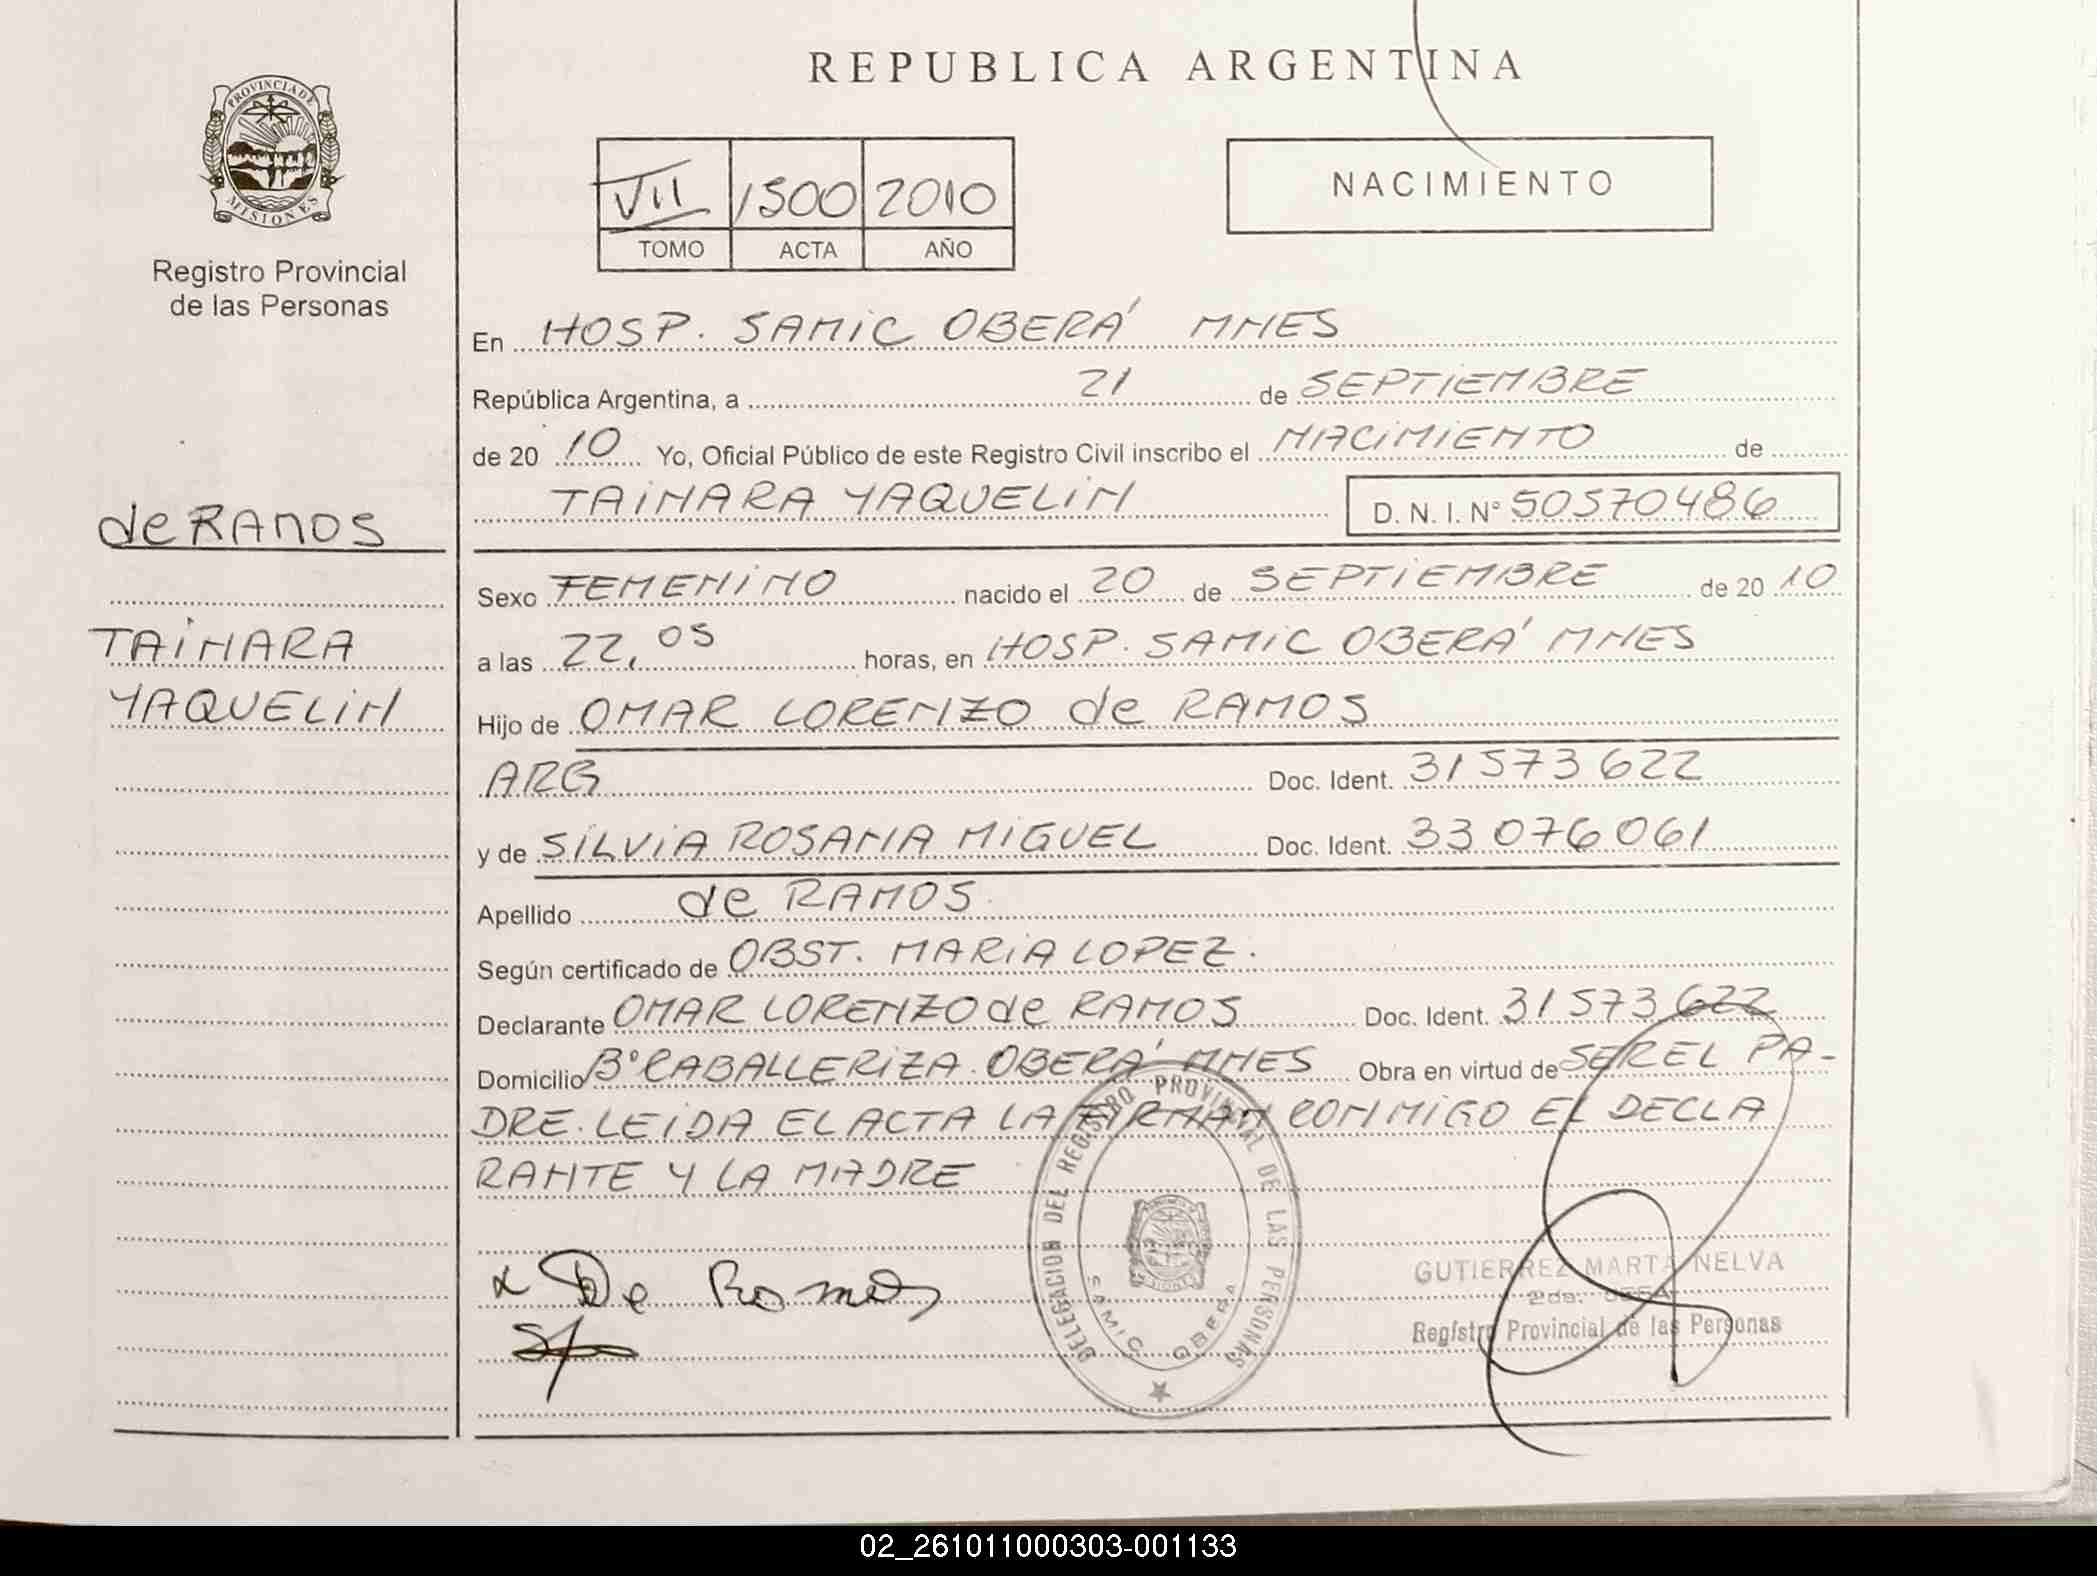 REPUBLICA ARGENTINA
PROVINCIA DE
MISIONES
Registro Provincial
de las Personas
VII 1500 2010
TOMO ACTA AÑO
NACIMIENTO
En HOSP. SAMIC OBERÁ MNES
República Argentina, a 21 de SEPTIEMBRE
de 20 10 Yo, Oficial Público de este Registro Civil inscribo el NACIMIENTO de
TAINARA YAQUELIN D. N. I. Nº 50570486
de RAMOS
TAINARA
YAQUELIN
Sexo FEMENINO nacido el 20 de SEPTIEMBRE de 20 10
a las 22,05 horas, en HOSP. SAMIC OBERÁ MNES
Hijo de OMAR LORENZO de RAMOS
ARG Doc. Ident. 31573622
y de SILVIA ROSANA MIGUEL Doc. Ident. 33076061
Apellido de RAMOS.
Según certificado de OBST. MARIA LOPEZ.
Declarante OMAR LORENZO de RAMOS Doc. Ident. 31573622
Domicilio Bº CABALLERIZA OBERÁ MNES Obra en virtud de SER EL PA-
DRE. LEIDA EL ACTA LA FIRMAN CONMIGO EL DECLA
RANTE Y LA MADRE
De Ramos
DELEGACION DEL REGISTRO PROVINCIAL DE LAS PERSONAS
SAMIC OBERA
GUTIERREZ MARTA NELVA
2da.
Registro Provincial de las Personas
02_261011000303-001133